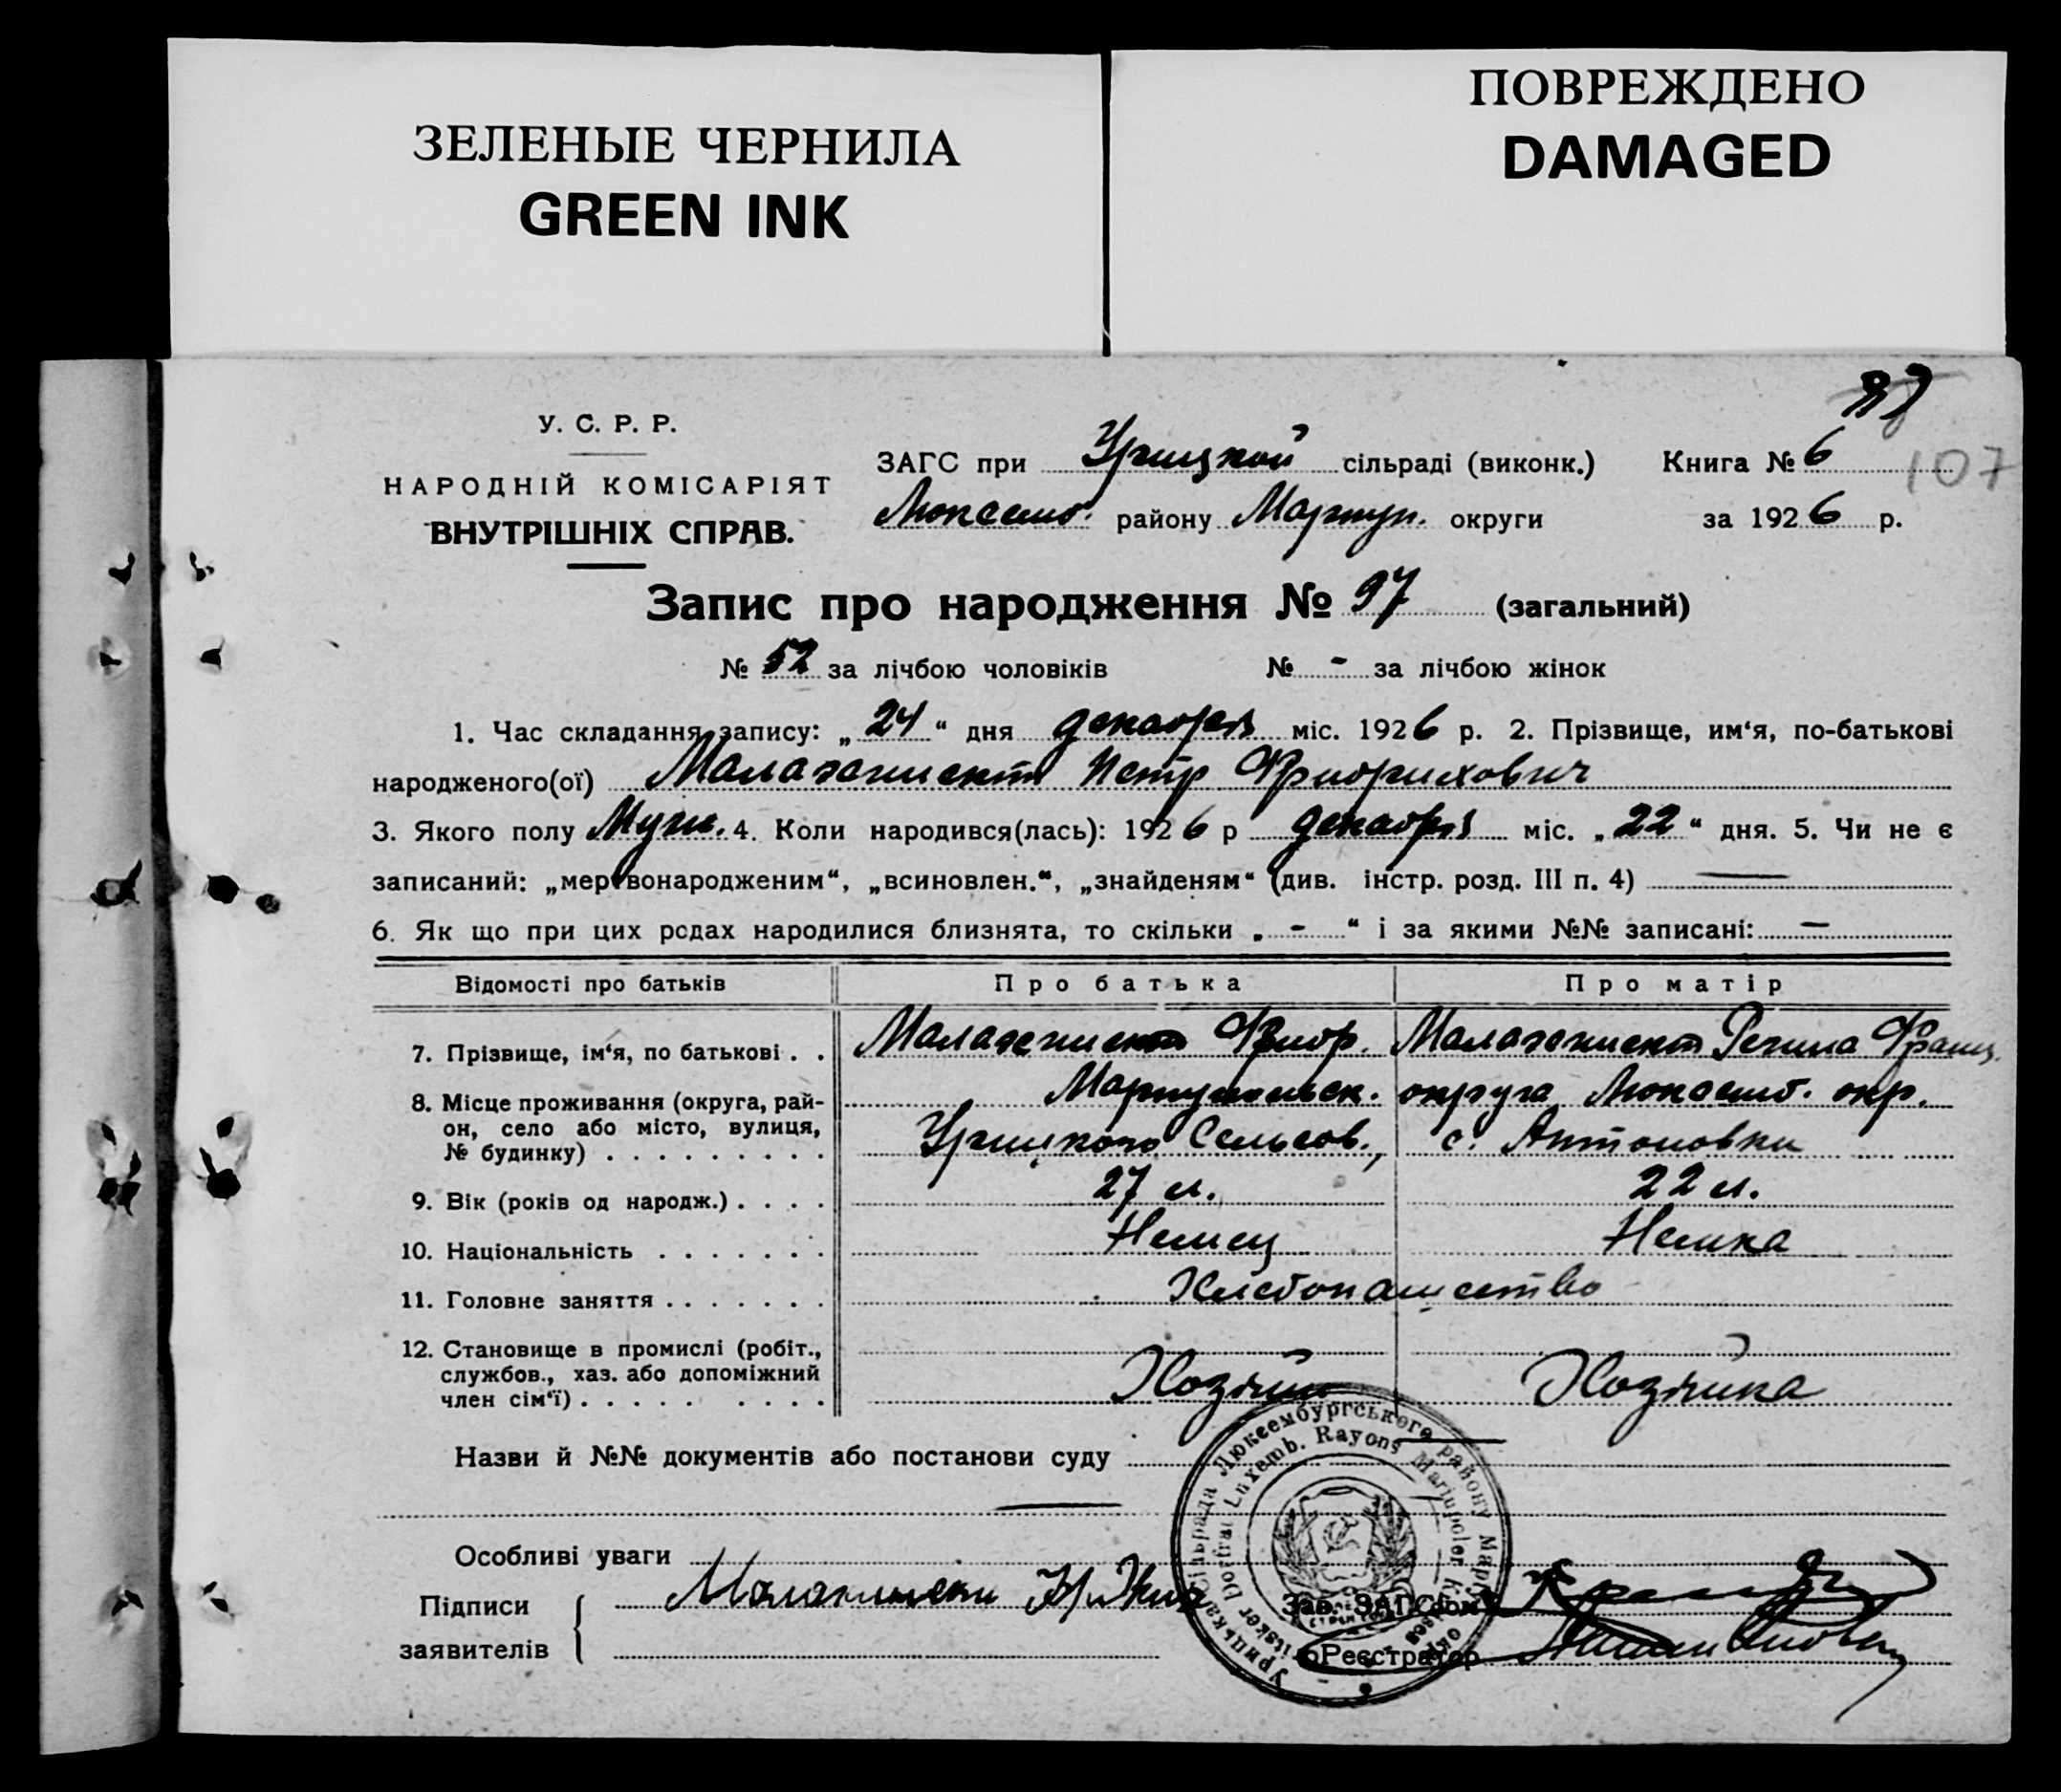 ЗЕЛЕНЫЕ ЧЕРНИЛА
GREEN INK
ПОВРЕЖДЕНО
DAMAGED
107
У. С. Р. Р.
НАРОДНІЙ КОМІСАРІЯТ
ВНУТРІШНІХ СПРАВ.
ЗАГС при Урицкой сільраді (виконк.) Книга № 6
Люксемб. району Мариуп. округи за 1926 р.
Запис про народження № 97 (загальний)
№ 52 за лічбою чоловіків № - за лічбою жінок
1. Час складання запису: „24“ дня декабря міс. 1926 р. 2. Прізвище, им‘я, по-батькові
народженого(ої) Петр Фридрихович
3. Якого полу Муж. 4. Коли народився(лась): 1926 р декабря міс. „22“ дня. 5. Чи не є
записаний: „мертвонародженим“, „всиновлен.“, „знайденям“ (див. інстр. розд. III п. 4) —
6. Як що при цих родах народилися близнята, то скільки „-“ і за якими №№ записані: —
Відомості про батьків Про батька Про матір
7. Прізвище, ім‘я, по батькові . . Фридр. Регина Франц.
8. Місце проживання (округа, рай- Мариупольск. округа Люксемб. окр.
он, село або місто, вулиця, Урицкого Сельсов., с. Антоновки
№ будинку) . . . . . . . . .
9. Вік (років од народж.) . . . . 27 л. 22 л.
10. Національність . . . . . . . Немец Немка
11. Головне заняття . . . . . . . Хлебопашество
12. Становище в промислі (робіт.,
службов., хаз. або допоміжний Хозяин Хозяйка
член сім‘ї) . . . . . . . . .
Назви й №№ документів або постанови суду
Особливі уваги
Підписи
заявителів
Зав. ЗАГС‘ом
Реєстратор
Урицька Сільрада Люксембургського району Маріуп. окр.
Luxemb. Rayons Mariupoler Kreises